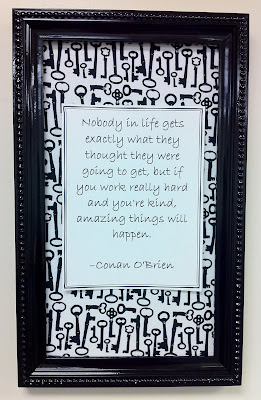 Nobody in life gets
exactly what they
thought they were
going to get, but if
you work really hard
and you're kind,
amazing things will
happen.
–Conan O'Brien